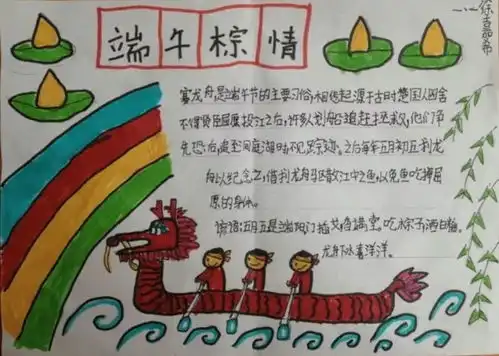 一.一 徐
端午粽情
赛龙舟,是端午节的主要习俗,相传起源于古时楚国人因舍
不得贤臣屈原投江之后,许多人划船追赶拯救,他们争
先恐后,追至洞庭湖时不见踪迹。之后每年五月初五划龙
舟以纪念之,借划龙舟驱散江中之鱼,以免鱼吃掉屈
原的身体。
谚语:五月五是端阳门插艾,香满堂。吃粽子,洒白糖。
龙舟下水喜洋洋。